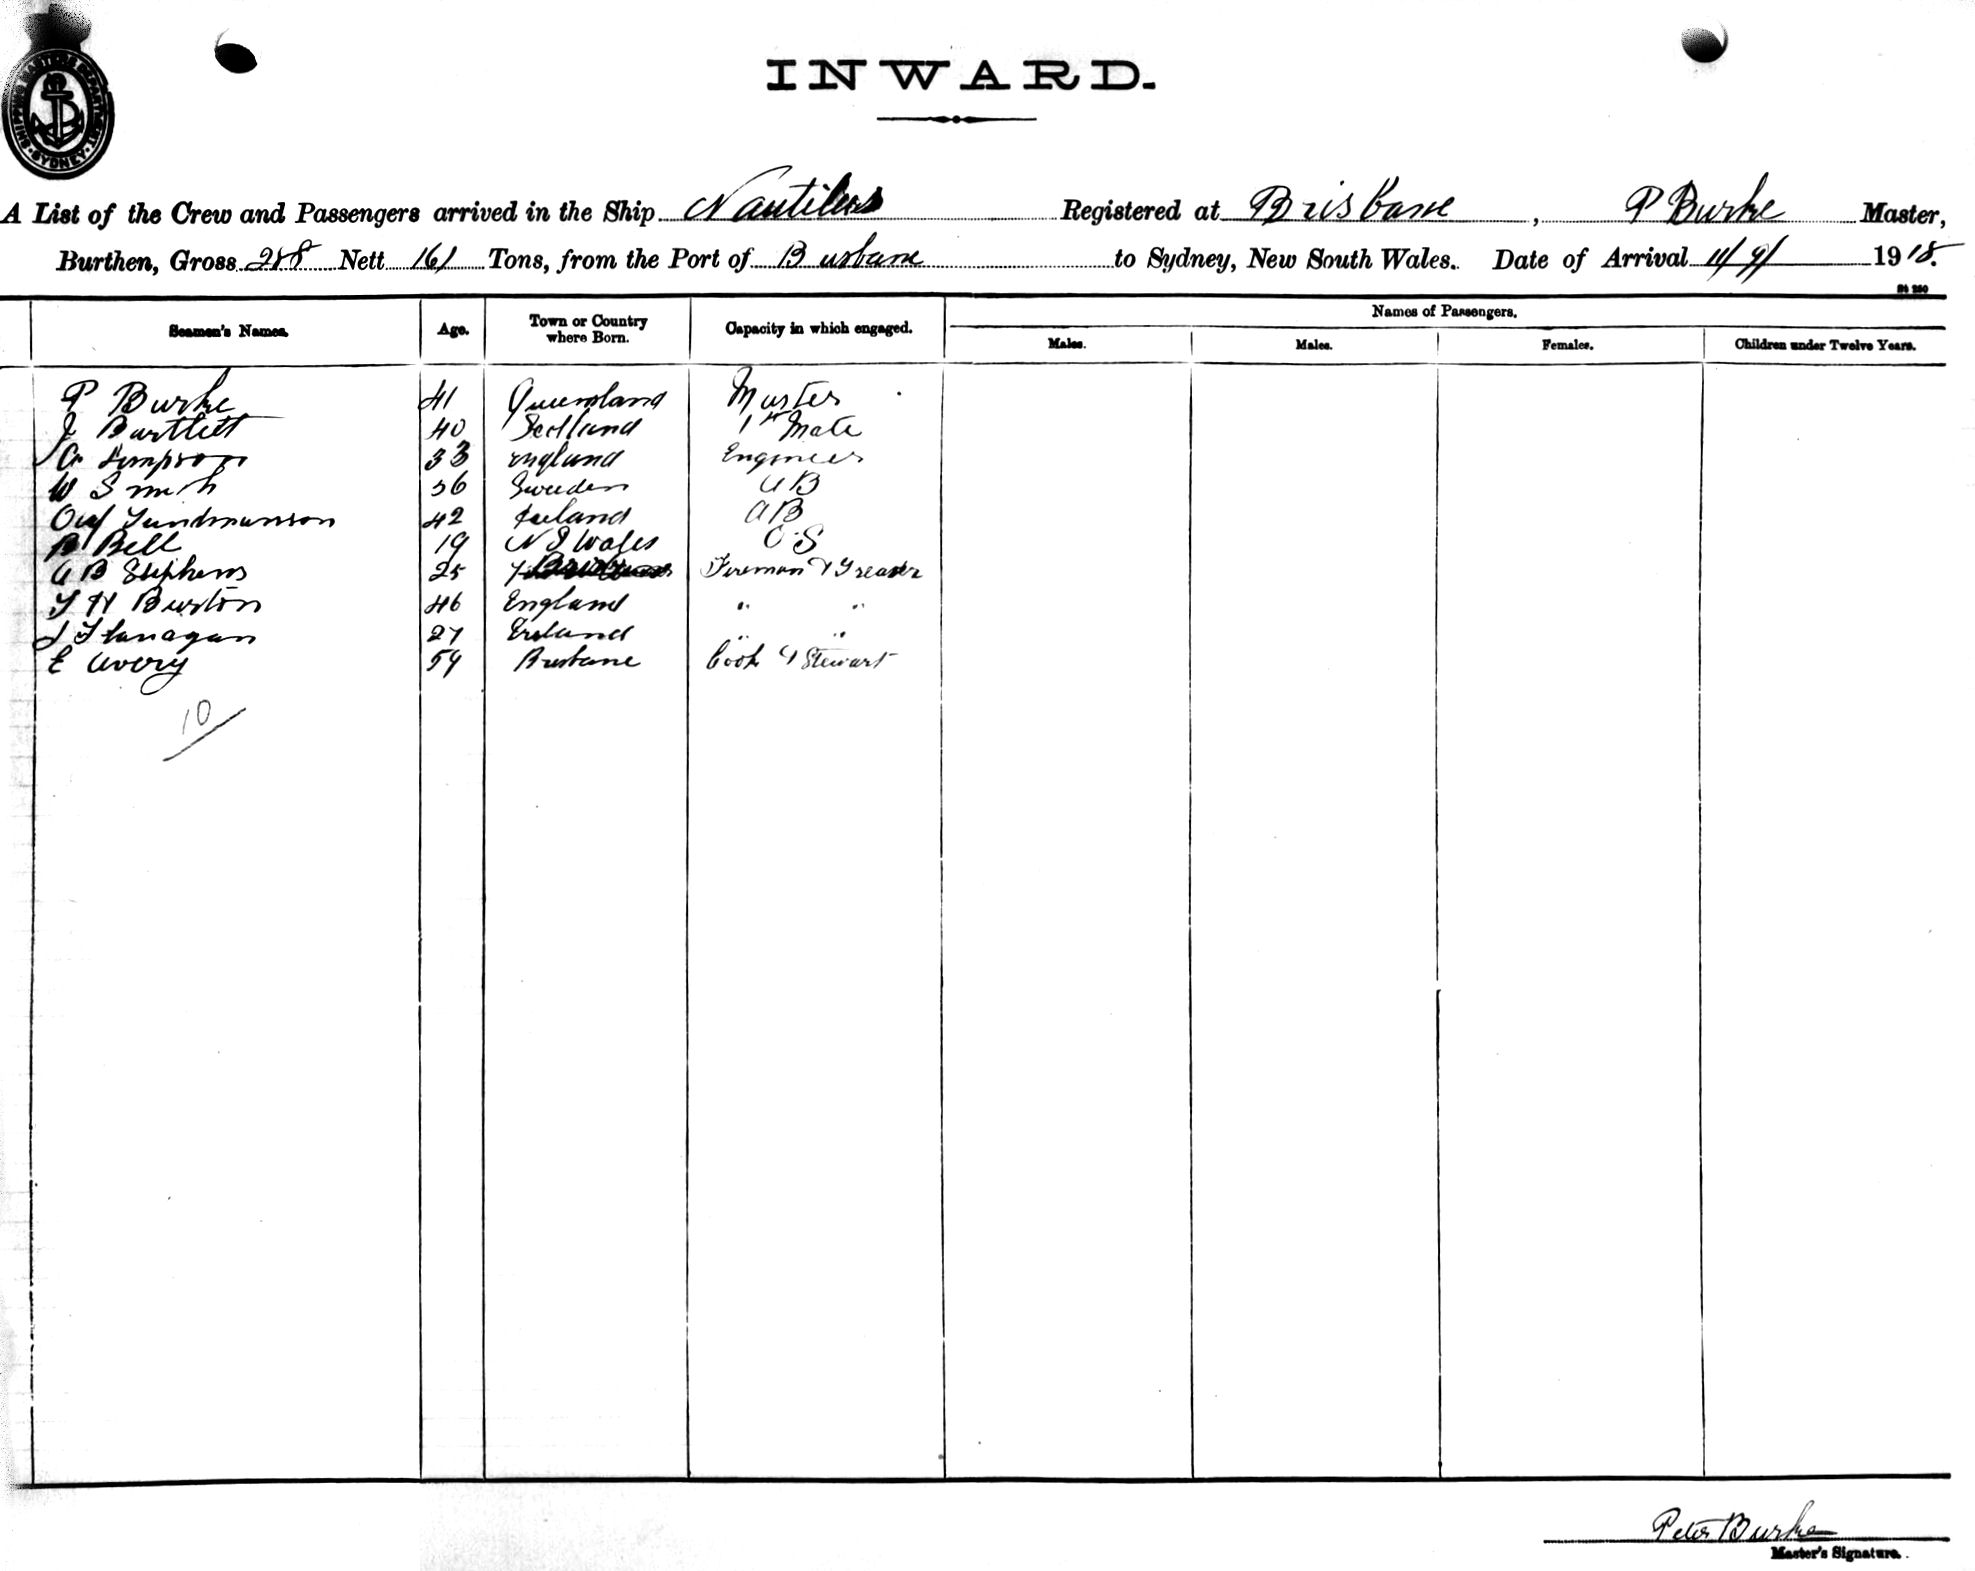 SHIPPING MASTERS DEPARTMENT. SYDNEY.
INWARD.
A List of the Crew and Passengers arrived in the Ship Nautilus Registered at Brisbane, P Burke Master,
Burthen, Gross 288 Nett 161 Tons, from the Port of Brisbane to Sydney, New South Wales. Date of Arrival 11/9/ 1918.
Names of Passengers.
Seamen's Names. Age. Town or Country where Born. Capacity in which engaged. Males. Males. Females. Children under Twelve Years.
P Burke 41 Queensland Master
J Bartlett 40 Scotland 1st Mate
A Simpson 33 England Engineer
W Smith 56 Sweden AB
42 Iceland AB
Bell 19 N S Wales OS
A B Stephens 25 Fireman & Greaser
T H Burton 46 England " "
J Flanagan 27 Ireland " "
E Avery 59 Brisbane Cook & Stewart
10
Peter Burke
Master's Signature.